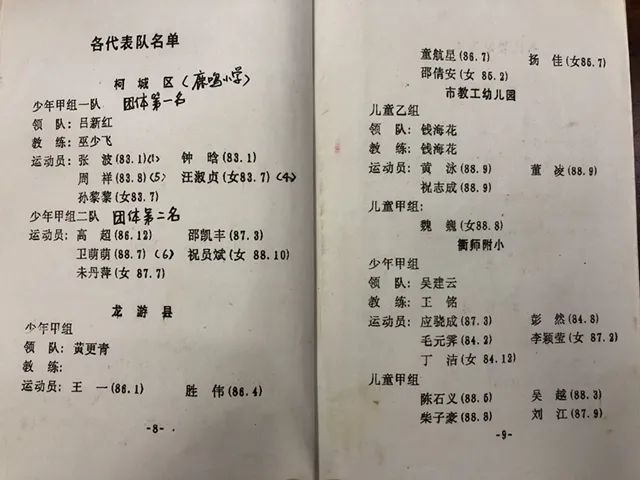 各代表队名单
柯城区(鹿鸣小学)
少年甲组一队 团体第一名
领 队:吕新红
教 练:巫少飞
运动员:张 波(83.1)(1) 钟 晗(83.1)
周 祥(83.8)(5) 汪淑贞(女83.7)(4)
孙黎黎(女83.7)
少年甲组二队 团体第二名
运动员:高 超(86.12) 邵凯丰(87.3)
卫萌萌(88.7)(6) 祝员斌(女 88.10)
未丹萍(女 87.7)
龙游县
少年甲组
领 队:黄更青
教 练:
运动员:王 一(86.1) 胜 伟(86.4)
-8-
童航星(86.7) 扬 佳(女85.7)
邵倩安(女 85.2)
市教工幼儿园
儿童乙组
领 队:钱海花
教 练:钱海花
运动员:黄 泳(88.9) 董 凌(88.9)
祝志成(88.9)
儿童甲组:
魏 巍(女88.8)
衢师附小
少年甲组
领 队:吴建云
教 练:王 铭
运动员:应骁成(87.3) 彭 然(84.8)
毛元霁(84.2) 李颖莹(女 87.2)
丁 洁(女 84.12)
儿童甲组
陈石义(88.5) 吴 越(88.3)
柴子豪(88.8) 刘 江(87.9)
-9-